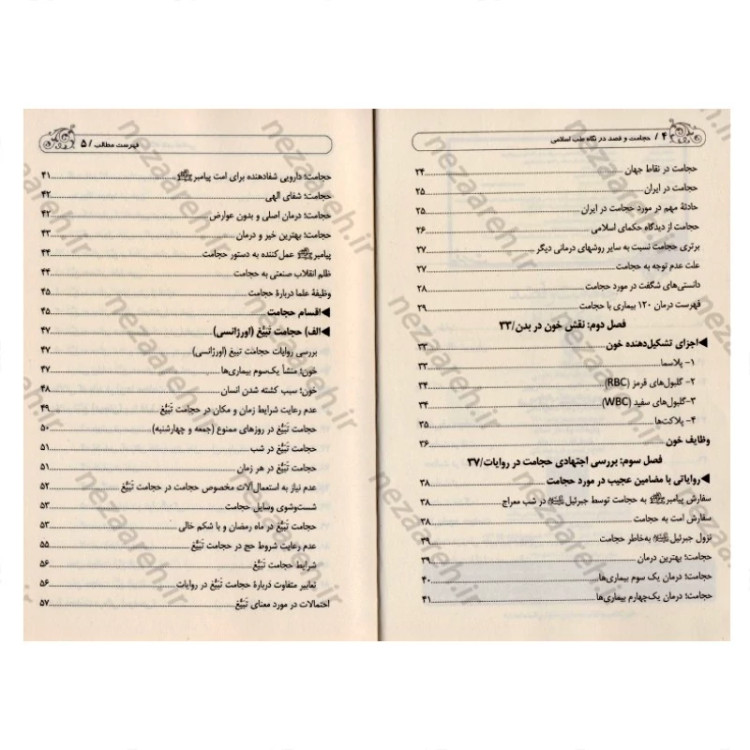 ۴ / حجامت و فصد در نگاه طب اسلامی
حجامت در نقاط جهان ۲۴
حجامت در ایران ۲۵
حادثهٔ مهم در مورد حجامت در ایران ۲۵
حجامت از دیدگاه حکمای اسلامی ۲۶
برتری حجامت نسبت به سایر روشهای درمانی دیگر ۲۷
علت عدم توجه به حجامت ۲۷
دانستی‌های شگفت در مورد حجامت ۲۸
فهرست درمان ۱۲۰ بیماری با حجامت ۲۹
فصل دوم: نقش خون در بدن/۳۳
◀اجزای تشکیل‌دهنده خون ۳۳
۱- پلاسما ۳۳
۲- گلبول‌های قرمز (RBC) ۳۴
۳-گلبول‌های سفید (WBC) ۳۴
۴- پلاکت‌ها ۳۵
وظایف خون ۳۶
فصل سوم: بررسی اجتهادی حجامت در روایات/۳۷
◀روایاتی با مضامین عجیب در مورد حجامت ۳۸
سفارش پیامبرﷺ به حجامت توسط جبرئیل در شب معراج ۳۸
سفارش امت به حجامت ۳۸
نزول جبرئیل به‌خاطر حجامت ۳۹
حجامت؛ بهترین درمان ۳۹
حجامت؛ درمان یک سوم بیماری‌ها ۴۰
حجامت؛ درمان یک‌چهارم بیماری‌ها ۴۱
فهرست مطالب / ۵
حجامت؛ دارویی شفادهنده برای امت پیامبرﷺ ۴۱
حجامت؛ شفای الهی ۴۲
حجامت؛ درمان اصلی و بدون عوارض ۴۲
حجامت؛ بهترین خیر و درمان ۴۳
پیامبرﷺ عمل‌کننده به دستور حجامت ۴۴
ظلم انقلاب صنعتی به حجامت ۴۴
وظیفهٔ علما دربارهٔ حجامت ۴۵
◀اقسام حجامت ۴۵
◀الف) حجامت تَبَیُّغ (اورژانسی) ۴۷
بررسی روایات حجامت تبیغ (اورژانسی) ۴۷
خون؛ منشأ یک‌سوم بیماری‌ها ۴۷
خون؛ سبب کشته شدن انسان ۴۸
عدم رعایت شرایط زمان و مکان در حجامت تَبَیُّغ ۴۹
حجامت تَبَیُّغ در روزهای ممنوع (جمعه و چهارشنبه) ۵۰
حجامت تَبَیُّغ در شب ۵۱
حجامت تَبَیُّغ در هر زمان ۵۱
عدم نیاز به استعمال آلات مخصوص حجامت در حجامت تَبَیُّغ ۵۲
شست‌وشوی وسایل حجامت ۵۳
حجامت تَبَیُّغ در ماه رمضان و یا شکم خالی ۵۳
عدم رعایت شروط حج در حجامت تَبَیُّغ ۵۵
شرایط حجامت تَبَیُّغ ۵۶
تعابیر متفاوت دربارهٔ حجامت تَبَیُّغ در روایات ۵۶
احتمالات در مورد معنای تَبَیُّغ ۵۷
nezaareh.ir